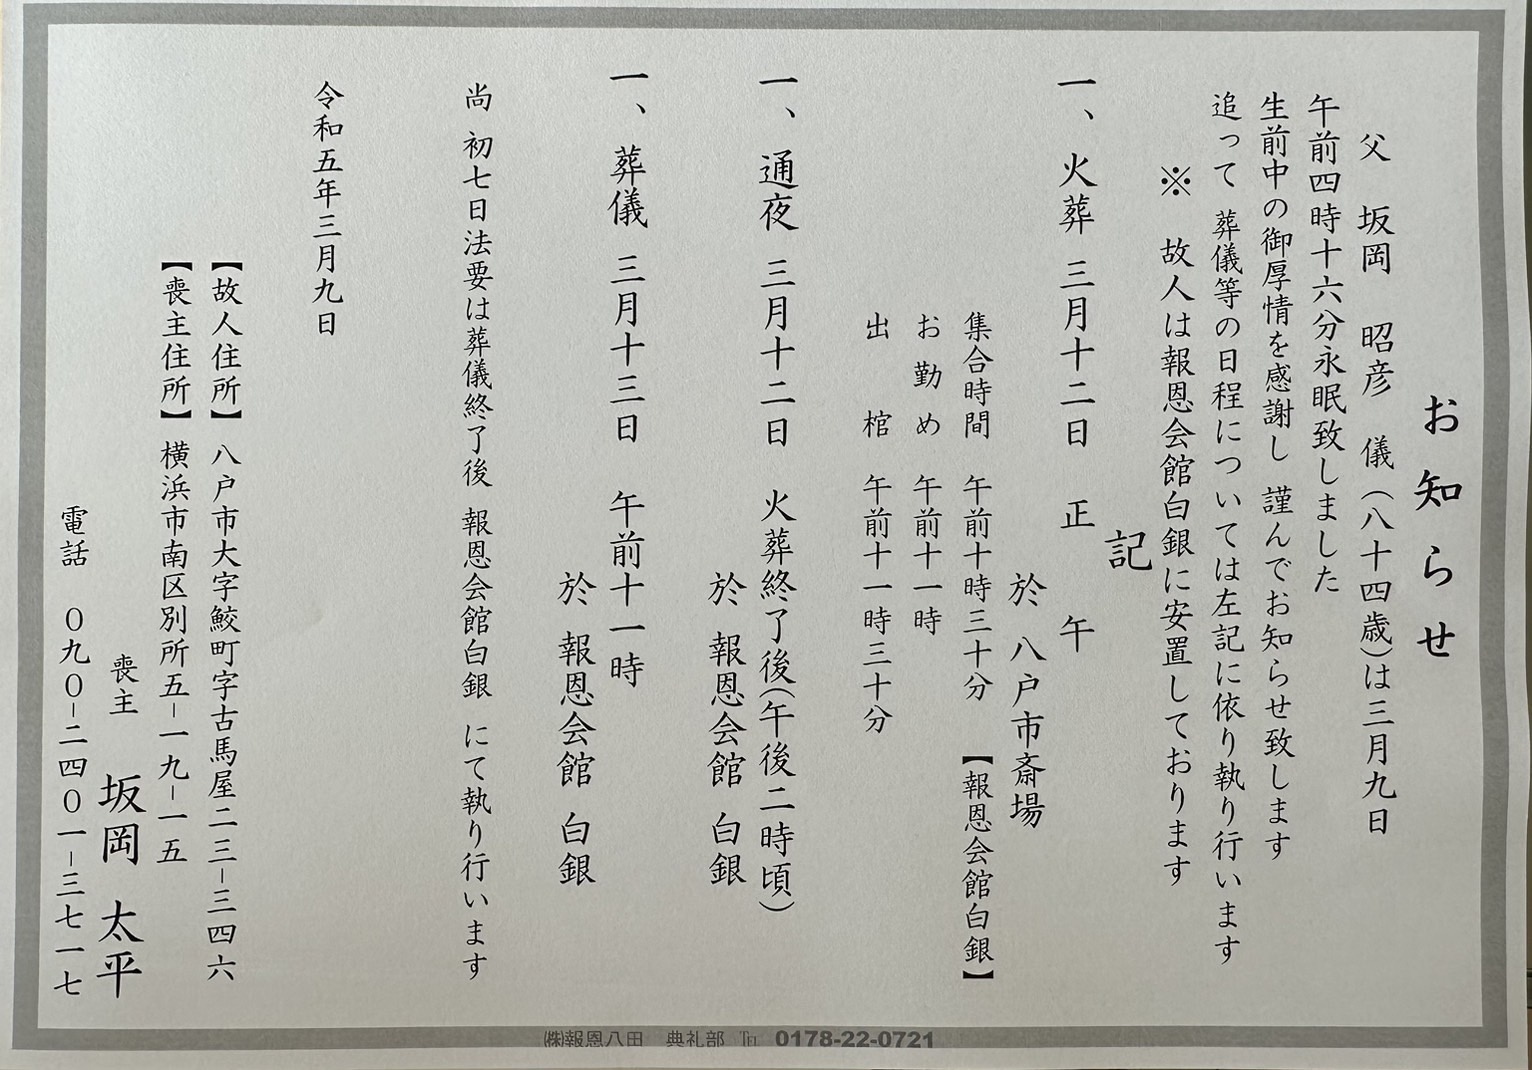 お知らせ
父 坂岡 昭彦 儀（八十四歳）は三月九日
午前四時十六分永眠致しました
生前中の御厚情を感謝し 謹んでお知らせ致します
追って 葬儀等の日程については左記に依り執り行います
※ 故人は報恩会館白銀に安置しております
記
一、火葬 三月十二日 正午
於 八戸市斎場
集合時間 午前十時三十分 【報恩会館白銀】
お勤め 午前十一時
出棺 午前十一時三十分
一、通夜 三月十二日 火葬終了後（午後二時頃）
於 報恩会館 白銀
一、葬儀 三月十三日 午前十一時
於 報恩会館 白銀
尚 初七日法要は葬儀終了後 報恩会館白銀 にて執り行います
令和五年三月九日
【故人住所】 八戸市大字鮫町字古馬屋二三－三四六
【喪主住所】 横浜市南区別所五－一九－一五
喪主 坂岡 太平
電話 ０九０－二四０一－三七一七
㈱報恩八田 典礼部 ℡ 0178-22-0721